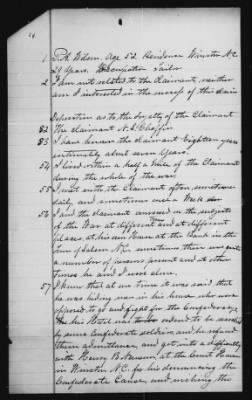 1 D. H. Wilson. Age 52. Residence Winston N.C.
29 Years. Occupation Tailor
2 I am not related to the claimant, neither
am I interested in the success of this claim
Deposition as to the Loyalty of the Claimant
82 The claimant N. S. Chaffin
83 I have known the claimant Eighteen years
intimately about seven years.
54 I lived within a half a mile of the Claimant
during the whole of the war.
55 I was with the Claimant often, sometimes
daily, and sometimes once a Week
56 I and the claimant conversed on the subject
of the War at different and at different
places, at his own house, at the Bank in the
town of Salem N.C. sometimes there was quite
a number of persons present and at other
times he and I were alone.
57 I know that at one time it was said that
he was hiding men in his house who were
opposed to go and fight for the Confederacy
his Hotel was ordered to be searched
by some Confederate soldiers, and he refused
them admittance, and got into a difficulty
with Henry B. at the Court House
in Winston N.C. for his denouncing the
Confederate Cause, and wishing the